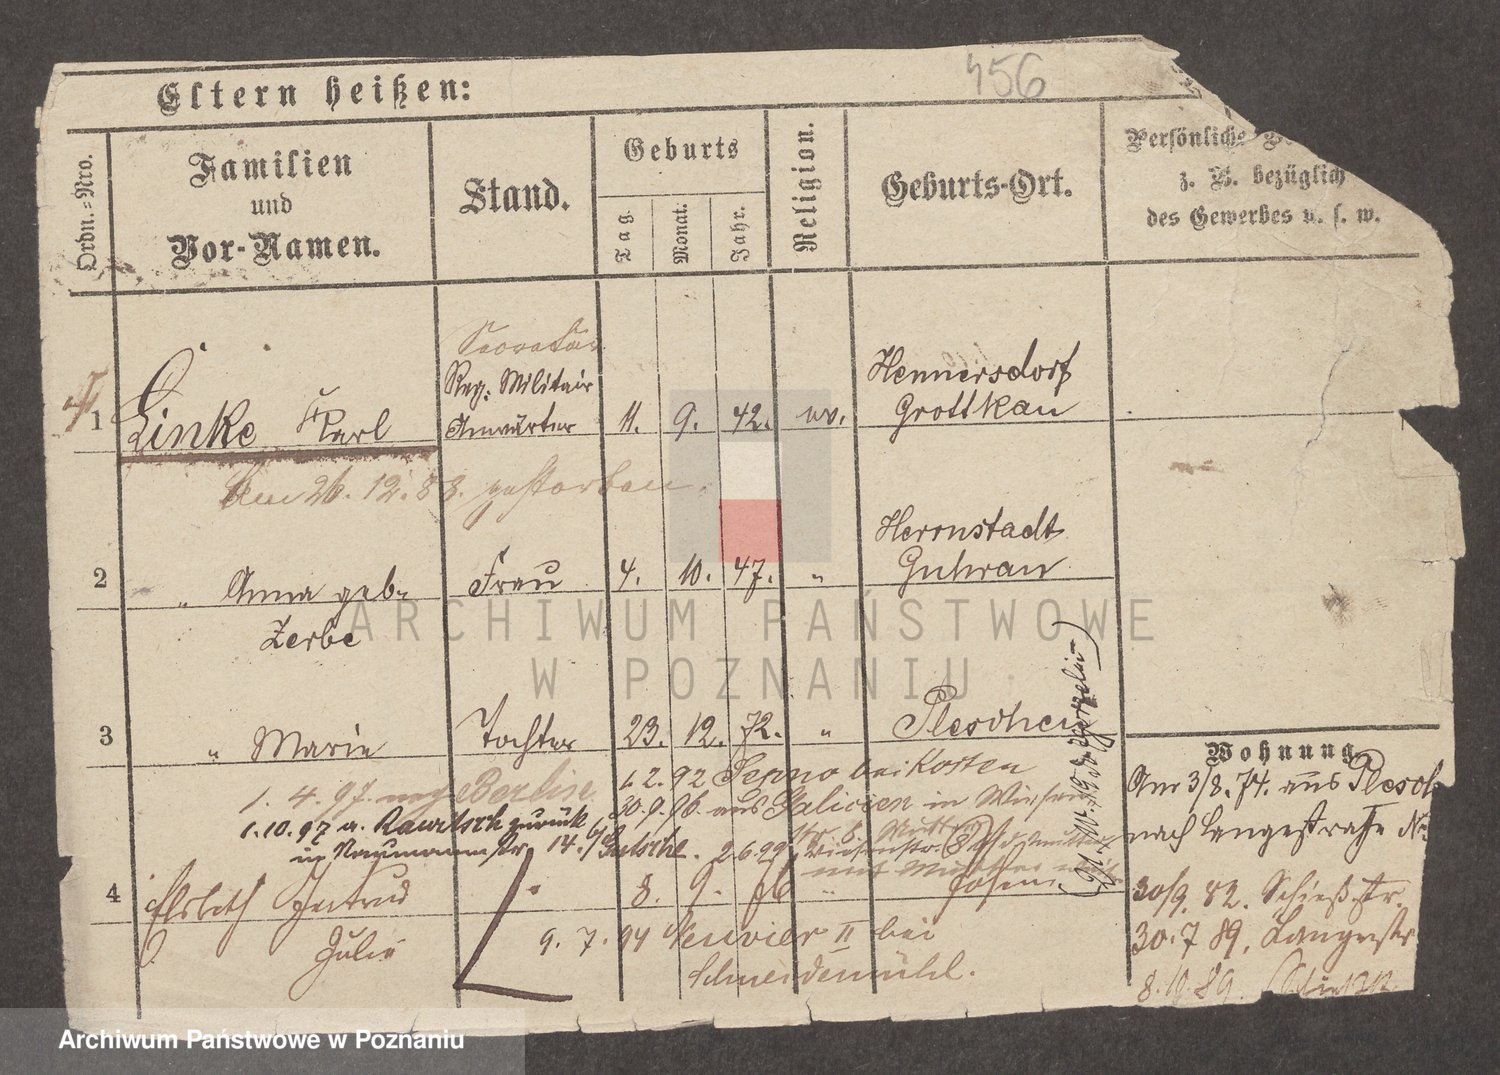 456
Eltern heißen:
Ordn.=Nro.
Familien
und
Vor-Namen.
Stand.
Geburts
Tag.
Monat.
Jahr.
Religion.
Geburts-Ort.
Persönliche
z. B. bezüglich
des Gewerbes u. s. w.
Secretär
Reg: Militair
Anwärter
1 Linke Karl 11. 9. 42. ev. Hennersdorf
Grottkau
Am 26. 12. 88. gestorben.
Herrnstadt
2 " Anna geb. Frau 4. 10. 47. " Guhrau
Zerbe
3 " Marie Tochter 23. 12. 72. " Pleschen
Wohnung
1. 2. 92 bei Kosten
1. 4. 97. Berlin
30. 9. 96. aus Galicien in
1. 10. 97 a. Rawitsch zurück
Naumannstr. 14. 6/
2 6 99
4 Elsbeth Gertrud " 8. 9. 76 " Posen
Julie
9. 7. 94 Neuvier II bei
Schneidemühl.
Am 3/8. 74. aus Plesch
nach Langestraße No
30/9. 82. Schießstr.
30. 7 89. Langestr
8. 10. 89.
ARCHIWUM PAŃSTWOWE
W POZNANIU
Archiwum Państwowe w Poznaniu